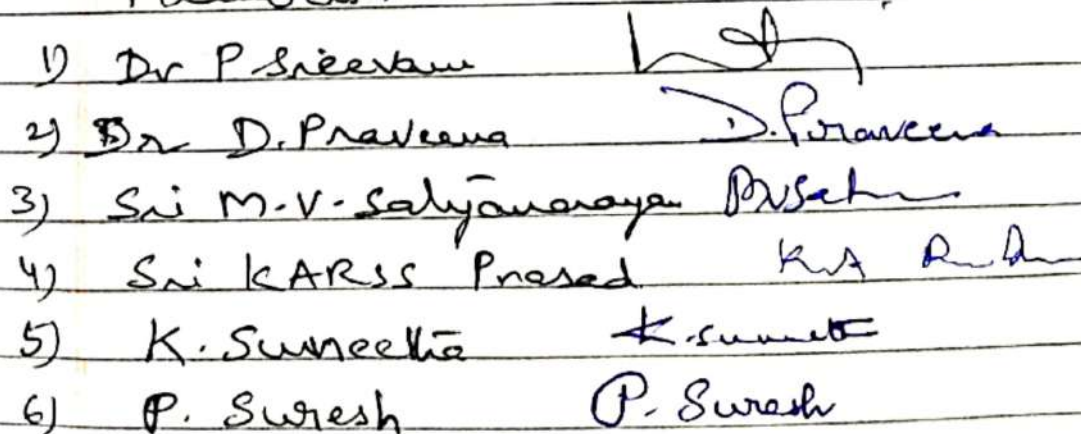 1) Dr P Sreevani
2) Dr D. Praveena D. Piraveena
3) Sri M.V. Satyānarayan
4) Sri KARSS Prasad K.A
5) K. Suneetha K. Suneet
6) P. Suresh P. Suresh